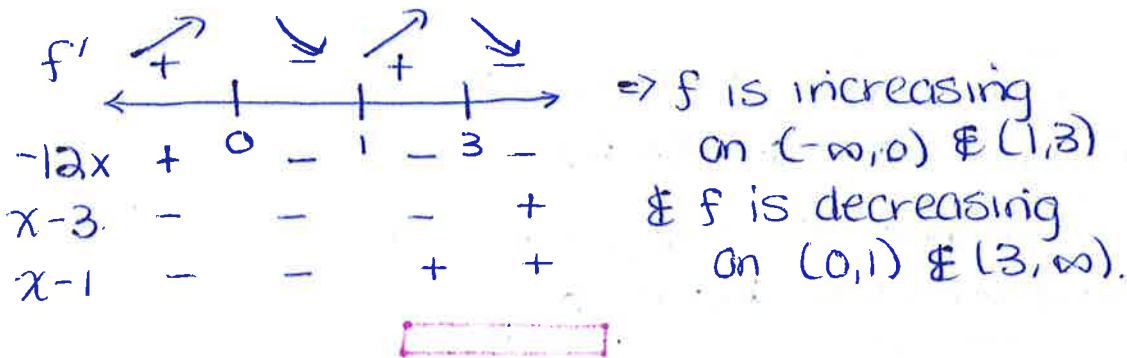 f' + - + -
0 1 3
-12x + - - -
x-3 - - - +
x-1 - - + +
=> f is increasing
on (-∞,0) & (1,3)
& f is decreasing
on (0,1) & (3,∞).